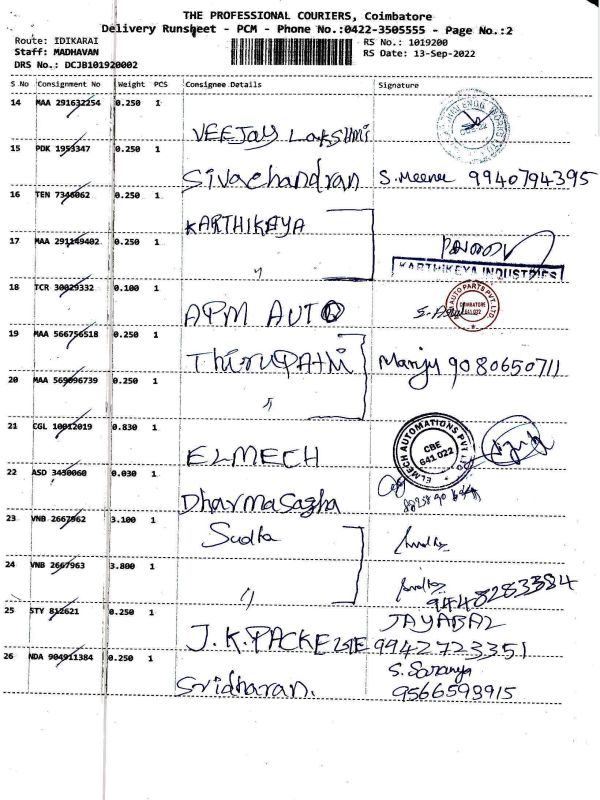 THE PROFESSIONAL COURIERS, Coimbatore
Delivery Runsheet - PCM - Phone No.:0422-3505555 - Page No.:2
Route: IDIKARAI
RS No.: 1019200
Staff: MADHAVAN
RS Date: 13-Sep-2022
DRS No.: DCJB101920002
S No Consignment No Weight PCS Consignee Details Signature
14 MAA 291632254 0.250 1
VEEJAY Lakshmi
15 PDK 1953347 0.250 1
Sivachandran S.Meena 9940794395
16 TEN 7346062 0.250 1
KARTHIKEYA
17 MAA 291149402 0.250 1
〃
KARTHIKEYA INDUSTRIES
18 TCR 30029332 0.100 1
APM AUTO
AUTO PARTS PVT. LTD. COIMBATORE 641 022
19 MAA 566756518 0.250 1
Thirupathi Manju 9080650711
20 MAA 569096739 0.250 1
〃
21 CGL 10012019 0.830 1
ELMECH
ELMECH AUTOMATIONS PVT. LTD. CBE 641 022
22 ASD 3430060 0.030 1
Dharmasastha
23 VNB 2667962 3.100 1
Sudha
24 VNB 2667963 3.800 1
〃
9448283384
25 STY 812621 0.250 1
JAYABAL
J.K.PACK 9942723351
26 NDA 904911384 0.250 1
S. Saranya
Sridharan. 9566598915